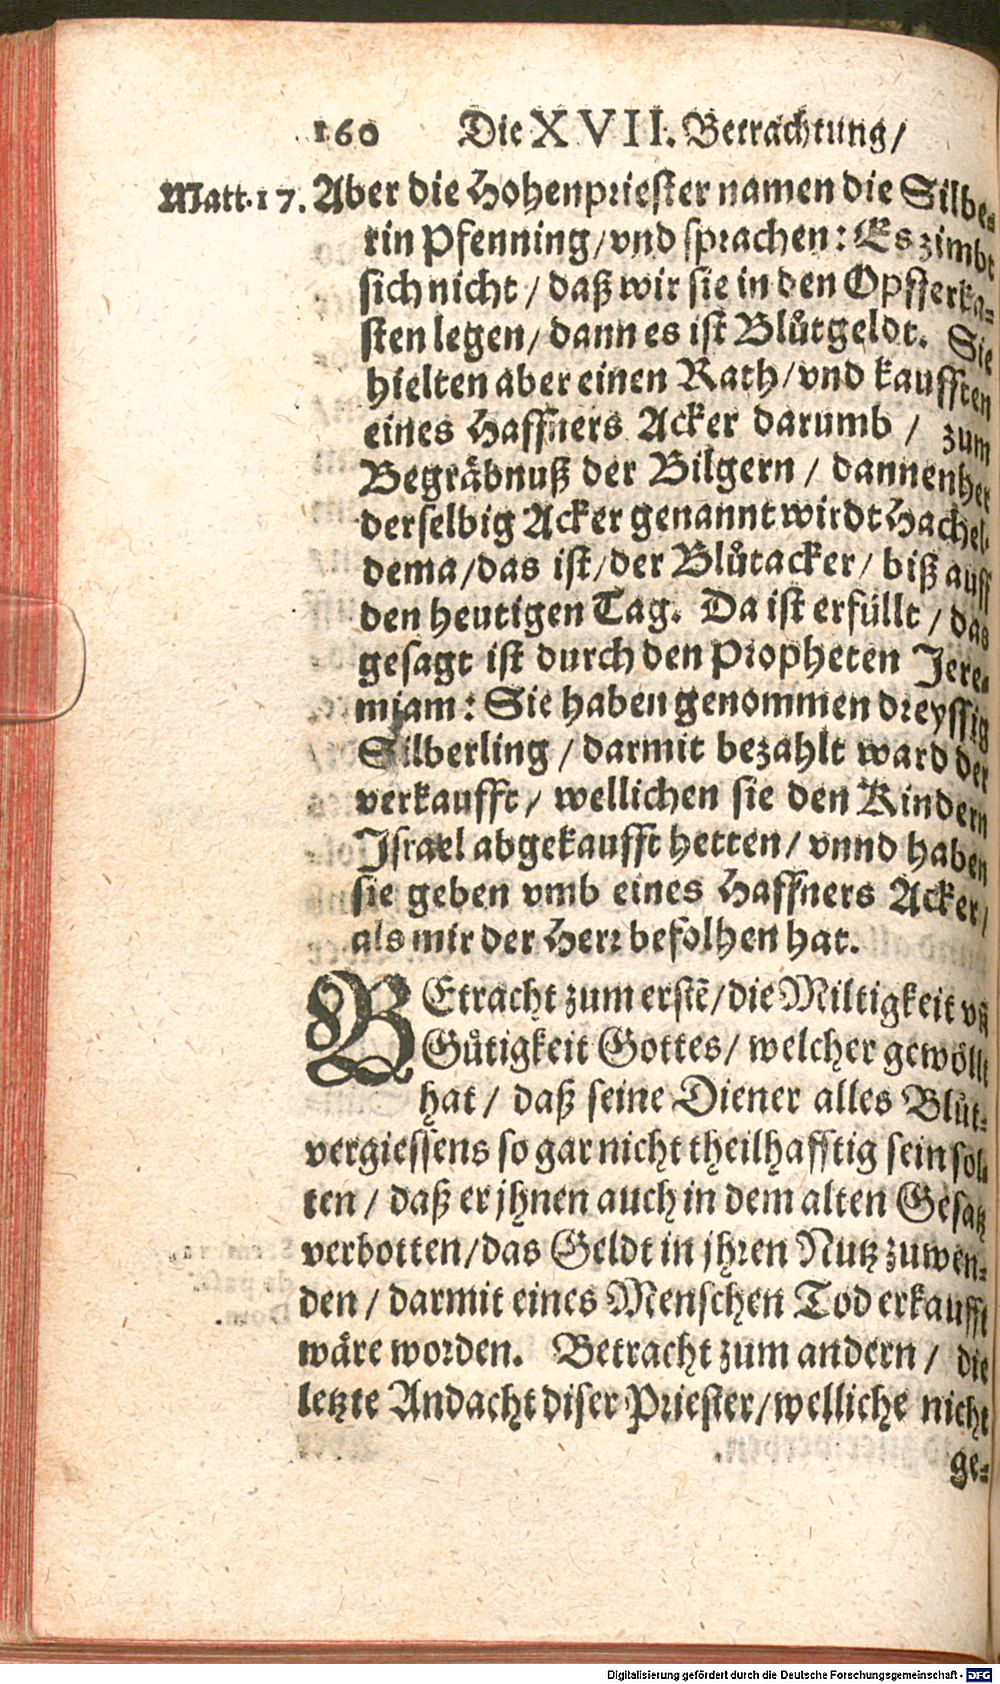 160 Die XVII. Betrachtung/
Matt. 17. Aber die Hohenpriester namen die Silbe-
rin Pfenning/vnd sprachen: Es zimbt
sich nicht / daß wir sie in den Opfferka-
sten legen/ dann es ist Blůtgeldt. Sie
hielten aber einen Rath/vnd kaufften
eines Haffners Acker darumb / zum
Begräbnuß der Bilgern / dannenher
derselbig Acker genannt wirdt Hachel-
dema/das ist/der Blůtacker/ biß auff
den heutigen Tag. Da ist erfüllt / das
gesagt ist durch den Propheten Jere-
mjam: Sie haben genommen dreyssig
Silberling / darmit bezahlt ward der
verkaufft/ wellichen sie den Kindern
Israel abgekaufft hetten/ vnnd haben
sie geben vmb eines Haffners Acker/
als mir der Herr befolhen hat.
BEtracht zum erstẽ/die Miltigkeit vñ
Gůtigkeit Gottes/ welcher gewöllt
hat / daß seine Diener alles Blůt-
vergiessens so gar nicht theilhafftig sein sol-
ten / daß er jhnen auch in dem alten Gesatz
verbotten/das Geldt in jhren Nutz zuwen-
den / darmit eines Menschen Tod erkaufft
wäre worden. Betracht zum andern / die
letzte Andacht diser Priester/welliche nicht
ge-
Digitalisierung gefördert durch die Deutsche Forschungsgemeinschaft - DFG